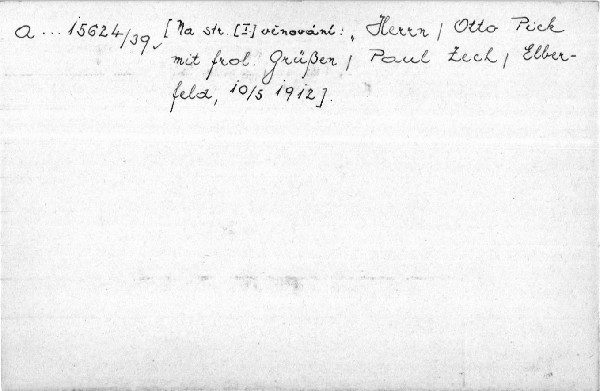 a... 15624/39 [Na str. [I] věnování: „Herrn / Otto Pick
mit frol. Grüßen / Paul Zech / Elber-
feld, 10/5 1912].